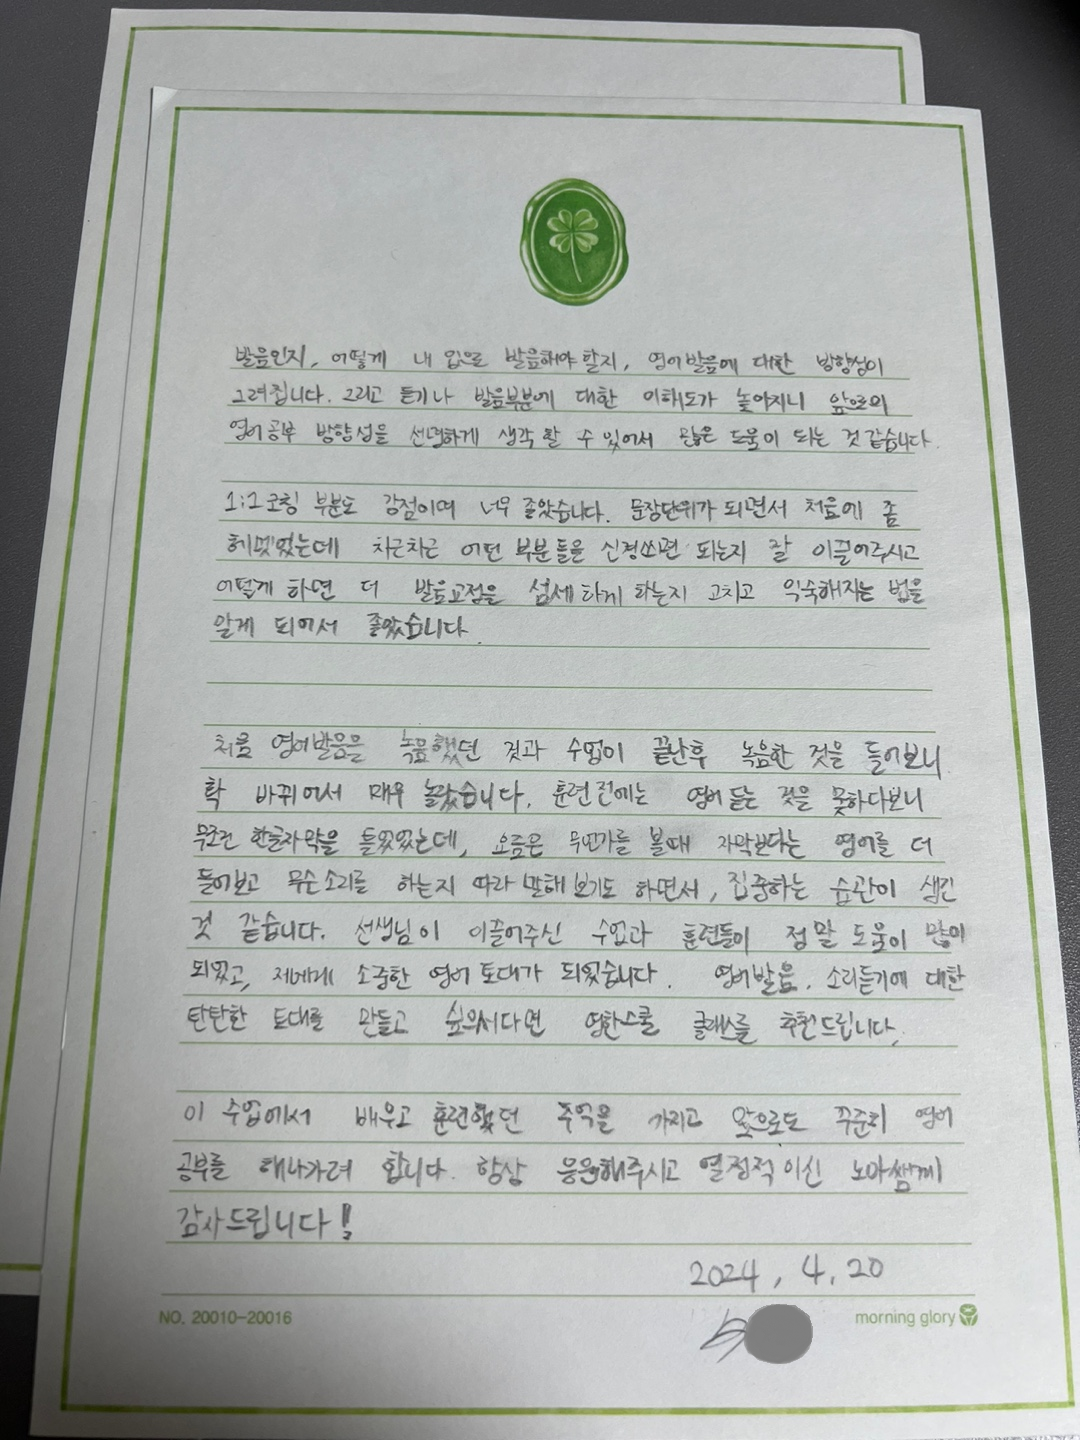 발음인지, 어떻게 내 입으로 발음해야 할지, 영어발음에 대한 방향성이
그려집니다. 그리고 듣기나 발음부분에 대한 이해도가 높아지니 앞으로의
영어공부 방향성을 선명하게 생각 할 수 있어서 많은 도움이 되는 것 같습니다.
1:1코칭 부분도 강점이며 너무 좋았습니다. 문장단위가 되면서 처음에 좀
헤맸었는데 차근차근 어떤 부분들을 신경쓰면 되는지 잘 이끌어주시고
어떻게 하면 더 발음교정을 섬세하게 하는지 고치고 익숙해지는 법을
알게 되어서 좋았습니다.
처음 영어발음을 녹음했던 것과 수업이 끝난후 녹음한 것을 들어보니
확 바뀌어서 매우 놀랐습니다. 훈련전에는 영어 듣는 것을 못하다보니
무조건 한글자막을 틀었었는데, 요즘은 무언가를 볼때 자막보다는 영어를 더
들어보고 무슨소리를 하는지 따라 말해보기도 하면서, 집중하는 습관이 생긴
것 같습니다. 선생님이 이끌어주신 수업과 훈련들이 정말 도움이 많이
되었고, 제게 소중한 영어 토대가 되었습니다. 영어발음, 소리듣기에 대한
탄탄한 토대를 만들고 싶으시다면 영한스쿨 클래스를 추천드립니다.
이 수업에서 배우고 훈련했던 추억을 가지고 앞으로도 꾸준히 영어
공부를 해나가려 합니다. 항상 응원해주시고 열정적이신 노아쌤께
감사드립니다!
2024. 4. 20
NO. 20010-20016
morning glory